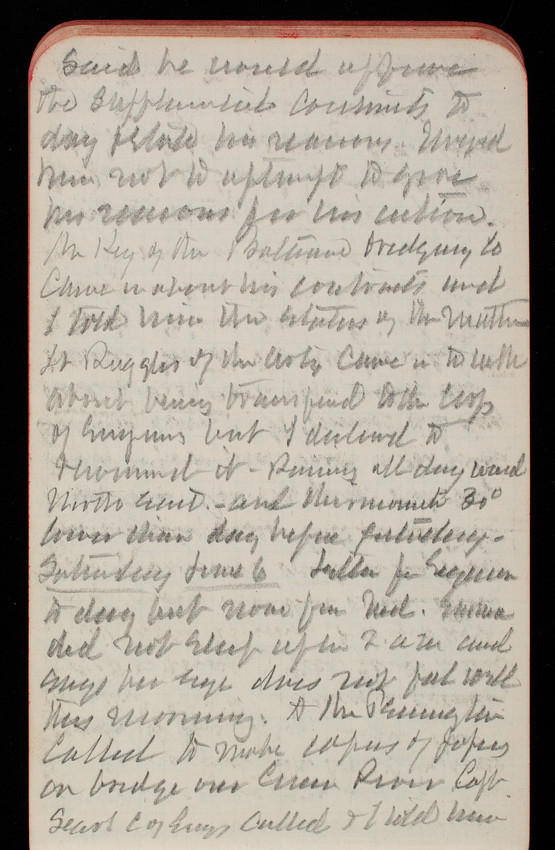 Said he would approve
the supplemental contracts to
day & state his reasons. Urged
him not to attempt to give
his reasons for his action.
Mr Key of the Baltimore bridge Co
Came in about his contracts and
I told him the status of the matter
Lt Ruggles of the Arty Came in to talk
about being transferred to the Corps
of Engineers but I declined to
recommend it - Raining all day wind
North East. - and thermometer 30°
lower than day before yesterday -
Saturday June 6 Letter for
to day but none from Ned. Emma
did not sleep until 2 a.m. and
says her eye does not feel well
this morning. A Mr Pennington
Called to make copies of papers
on bridge over Green River Capt
of Engrs Called & I told him